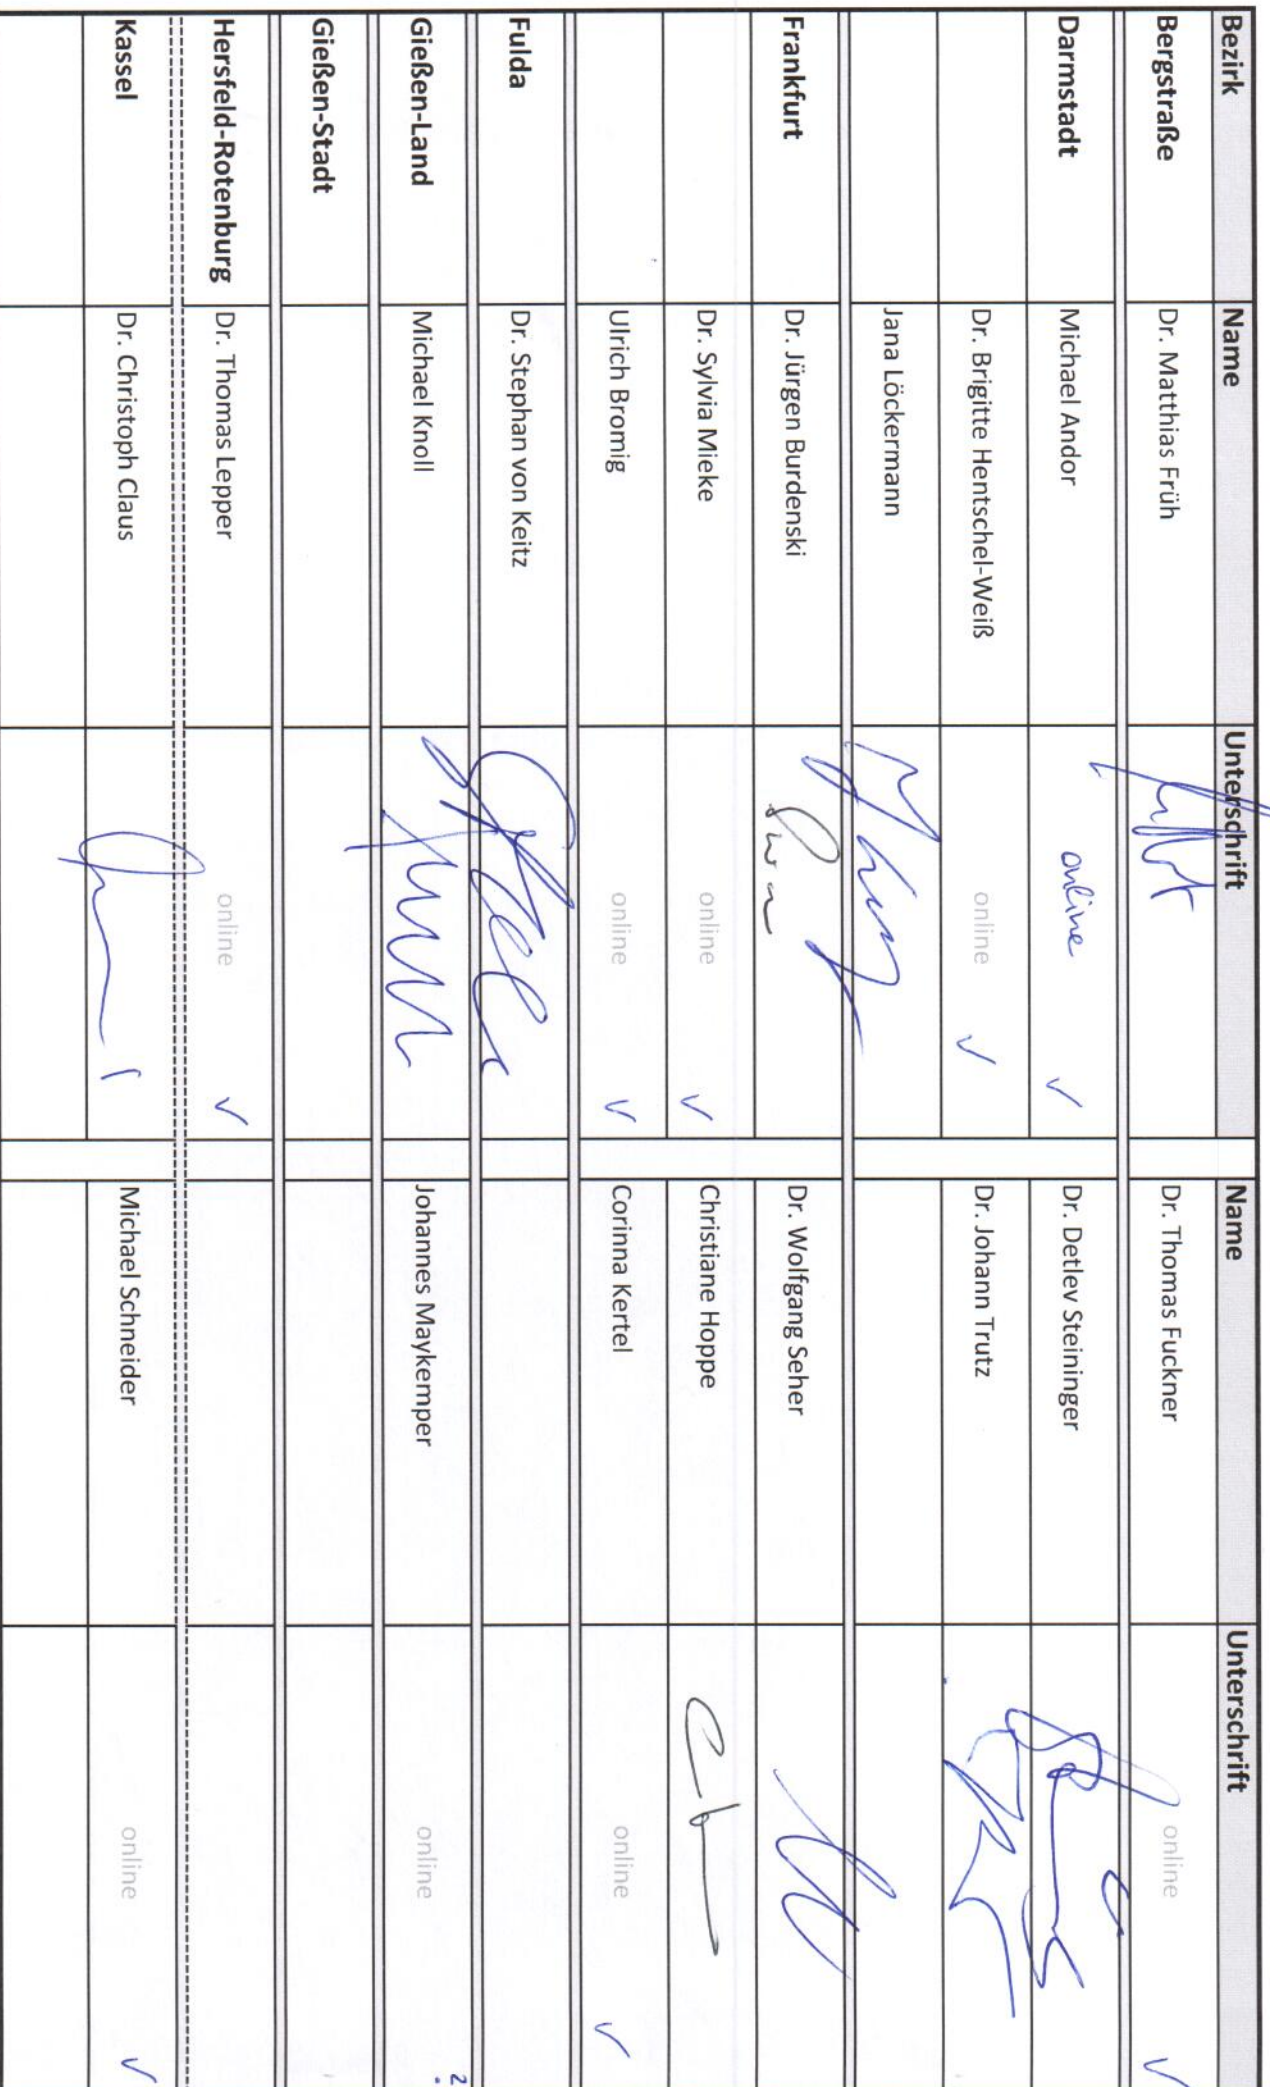 Bezirk Name Unterschrift Name Unterschrift
Bergstraße Dr. Matthias Früh Dr. Thomas Fuckner online ✓
Darmstadt Michael Andor online ✓ Dr. Detlev Steininger
Dr. Brigitte Hentschel-Weiß online ✓ Dr. Johann Trutz
Jana Löckermann
Frankfurt Dr. Jürgen Burdenski Dr. Wolfgang Seher
Dr. Sylvia Mieke online ✓ Christiane Hoppe
Ulrich Bromig online ✓ Corinna Kertel online ✓
Fulda Dr. Stephan von Keitz
Gießen-Land Michael Knoll Johannes Maykemper online ?
Gießen-Stadt
Hersfeld-Rotenburg Dr. Thomas Lepper online ✓
Kassel Dr. Christoph Claus Michael Schneider online ✓